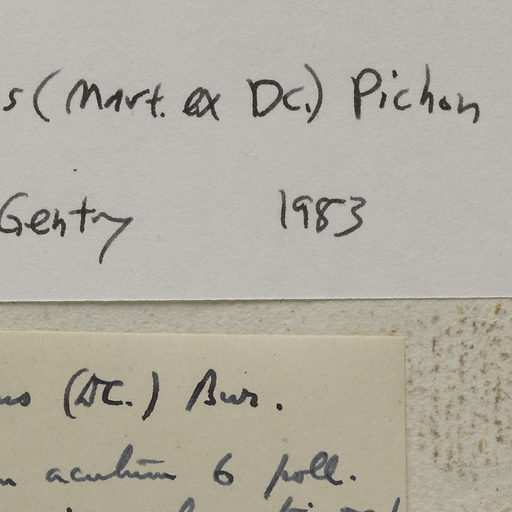 s (Mart. ex DC.) Pichon
Gentry 1983
us (DC.) Bur.
acutum 6 poll.